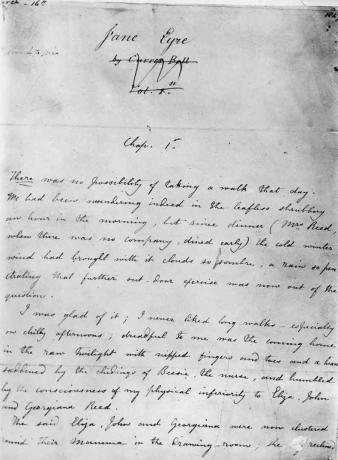 Jane Eyre
by Currer Bell
Vol. 1
Chap. 1.
There was no possibility of taking a walk that day.
We had been wandering indeed in the leafless shrubbery
an hour in the morning, but since dinner (Mrs Reed,
when there was no company, dined early) the cold winter
wind had brought with it clouds so sombre, a rain so pen
etrating that further out-door exercise was now out of the
question.
I was glad of it; I never liked long walks - especially
on chilly afternoons; dreadful to me was the coming home
in the raw twilight with nipped fingers and toes and a hear
saddened by the chidings of Bessie, the nurse, and humbled
by the consciousness of my physical inferiority to Eliza, John
and Georgiana Reed.
The said Eliza, John and Georgiana were now clustered
round their Mamma in the drawing-room; she reclined